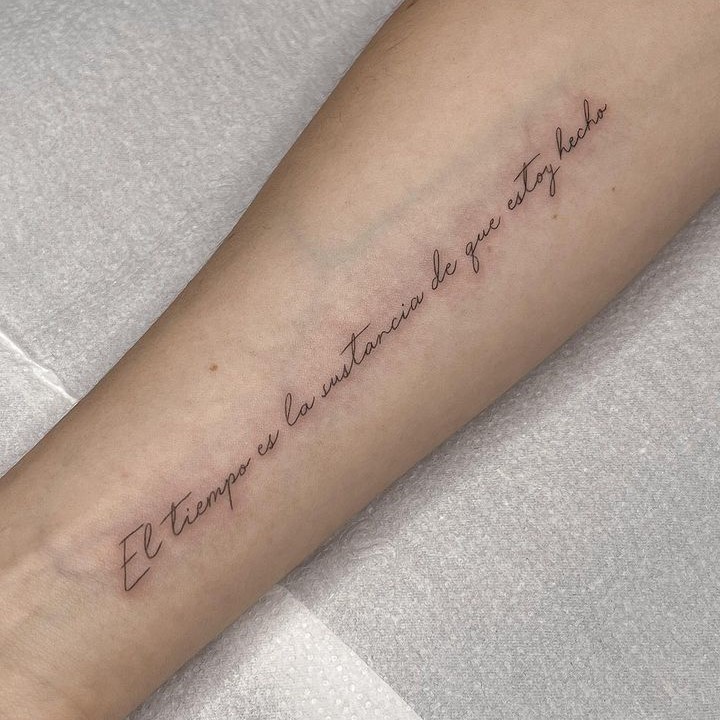 El tiempo es la sustancia de que estoy hecho